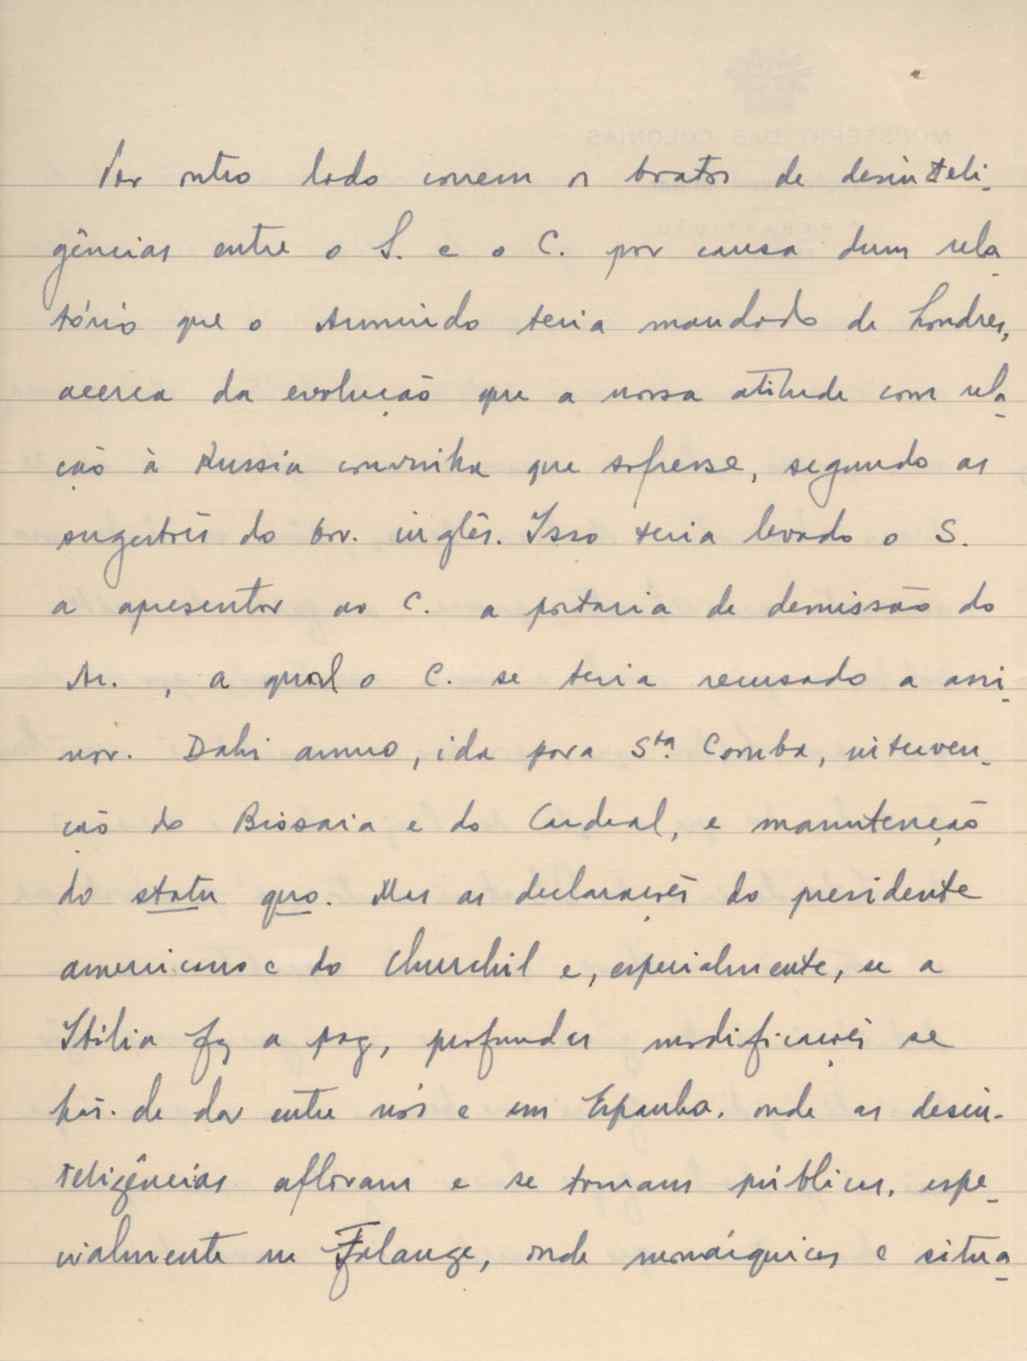 Por outro lado correm os boatos de desinteli-
gências entre o S. e o C. por causa dum rela-
tório que o Armindo teria mandado de Londres,
acerca da evolução que a nossa atitude com rela-
ção à Russia convinha que sofresse, segundo as
sugestões do Gov. inglês. Isso teria levado o S.
a apresentar ao C. a portaria de demissão do
Ar. , a qual o C. se teria recusado a assi-
nar. Dahi amuo, ida para Sta. Comba, interven-
ção do Bissaia e do Cardeal, e manutenção
do statu quo. Mas as declarações do presidente
americano e do Churchil e, especialmente, se a
Itália fez a paz, profundas modificações se
hão-de dar entre nós e em Espanha, onde as desin-
teligências afloram e se tornam públicas, espe-
cialmente na Falange, onde monárquicos e situa-